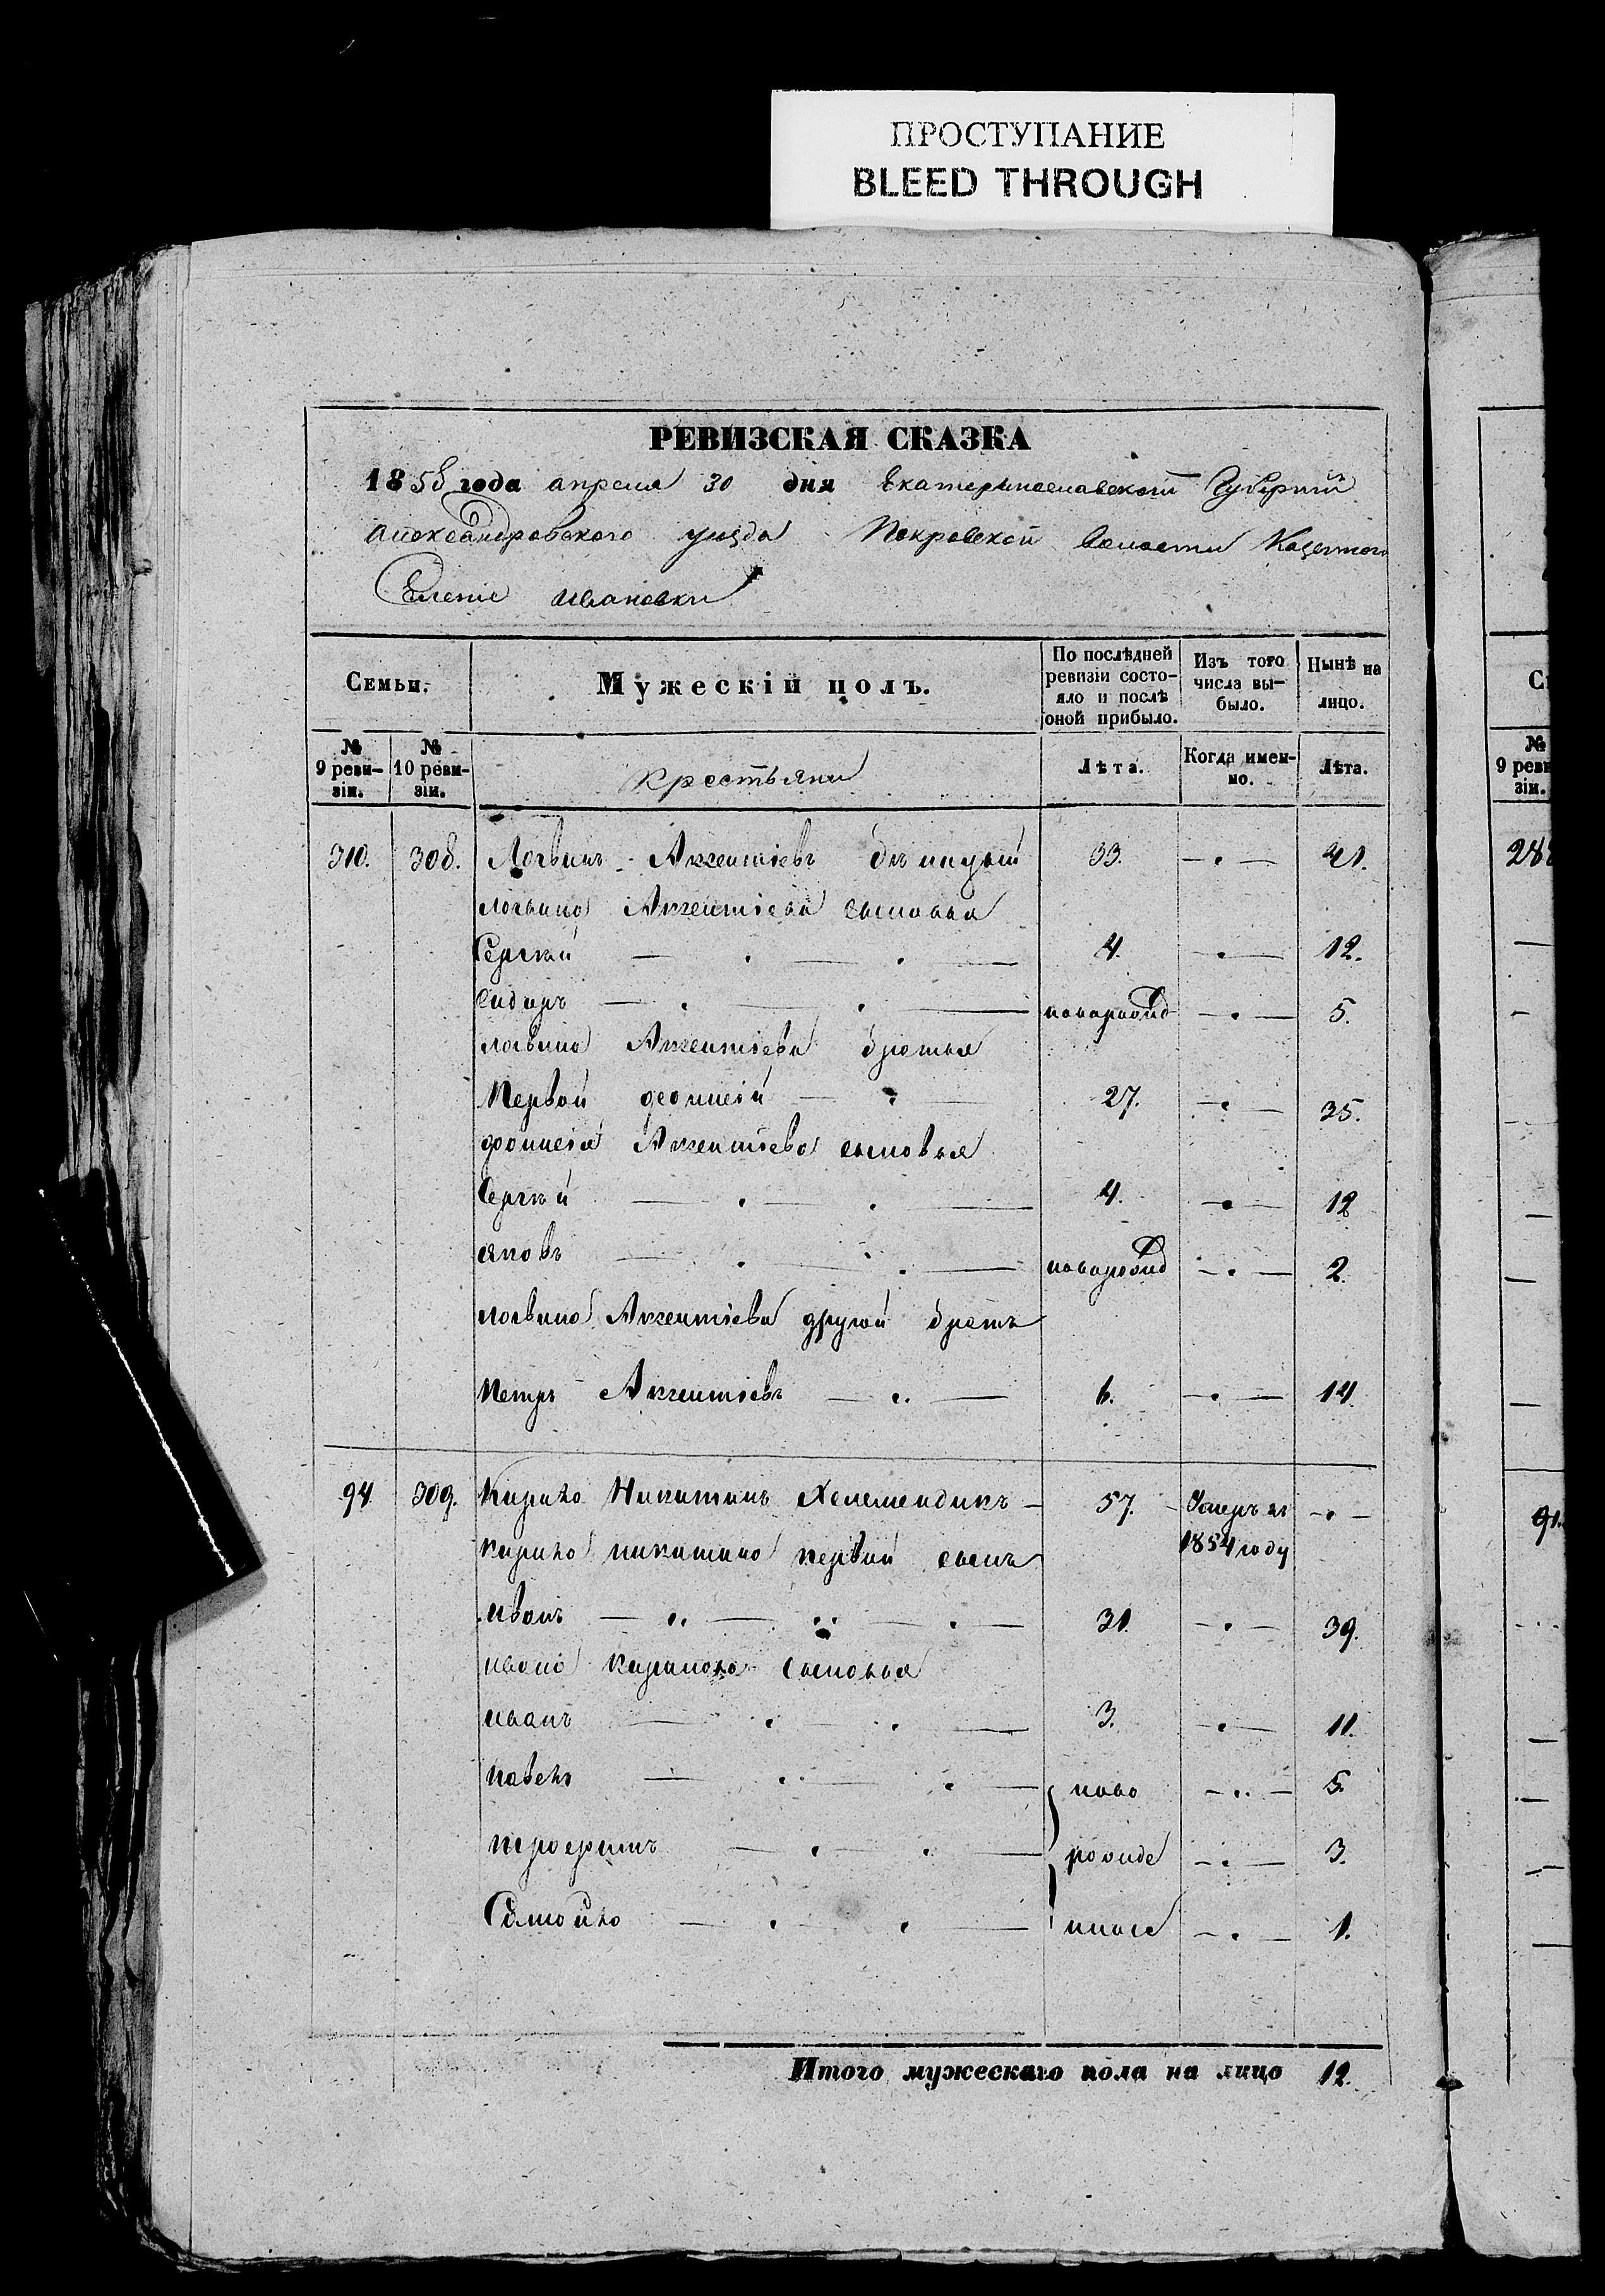 ПРОСТУПАНИЕ
BLEED THROUGH
РЕВИЗСКАЯ СКАЗКА
1858 года апреля 30 дня Екатеринославской Губернии
Александровского уезда Покровской волости Казенного
Селение Ивановки
Семьи. Мужескій полъ. По послѣдней ревизіи состояло и послѣ оной прибыло. Изъ того числа выбыло. Нынѣ на лицо.
№ 9 ревизіи. № 10 ревизіи. крестьяни Лѣта. Когда именно. Лѣта.
310. 308. Логвинъ Авксентіевъ 33. 41.
логвина Авксентіева сыновья
Сергѣй 4. 12.
Сидиръ новорожд 5.
логвина Авксентіева братья
Первой 27. 35.
Авксентіева сыновья
Сергѣй 4. 12
яковъ новорожд 2.
логвина Авксентіева другой братъ
петръ Авксентіевъ 6. 14.
94. 309. Кирило Никитинъ 57. Умеръ въ
кирила никитина первый сынъ 1854 году
иванъ 31. 39.
ивана кирилова сыновья
иванъ 3. 11.
павелъ ново 5.
трофимъ рожде 3.
Самойло нные 1.
Итого мужескаго пола на лицо 12.
№ 9 реви
зіи.